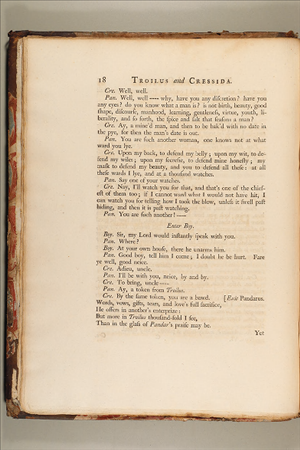 18 TROILUS and CRESSIDA.
Cre. Well, well.
Pan. Well, well — why, have you any discretion? have you
any eyes? do you know what a man is? is not birth, beauty, good
shape, discourse, manhood, learning, gentleness, virtue, youth, li-
berality, and so forth, the spice and salt that seasons a man?
Cre. Ay, a minc'd man, and then to be bak'd with no date in
the pye, for then the man's date is out.
Pan. You are such another woman, one knows not at what
ward you lye.
Cre. Upon my back, to defend my belly; upon my wit, to de-
fend my wiles; upon my secresie, to defend mine honesty; my
mask to defend my beauty, and you to defend all these: at all
these wards I lye, and at a thousand watches.
Pan. Say one of your watches.
Cre. Nay, I'll watch you for that, and that's one of the chief-
est of them too; if I cannot ward what I would not have hit, I
can watch you for telling how I took the blow, unless it swell past
hiding, and then it is past watching.
Pan. You are such another! —
Enter Boy.
Boy. Sir, my Lord would instantly speak with you.
Pan. Where?
Boy. At your own house, there he unarms him.
Pan. Good boy, tell him I come; I doubt he be hurt. Fare
ye well, good neice.
Cre. Adieu, uncle.
Pan. I'll be with you, neice, by and by.
Cre. To bring, uncle —
Pan. Ay, a token from Troilus.
Cre. By the same token, you are a bawd. [Exit Pandarus.
Words, vows, gifts, tears, and love's full sacrifice,
He offers in another's enterprize:
But more in Troilus thousand-fold I see,
Than in the glass of Pandar's praise may be.
Yet